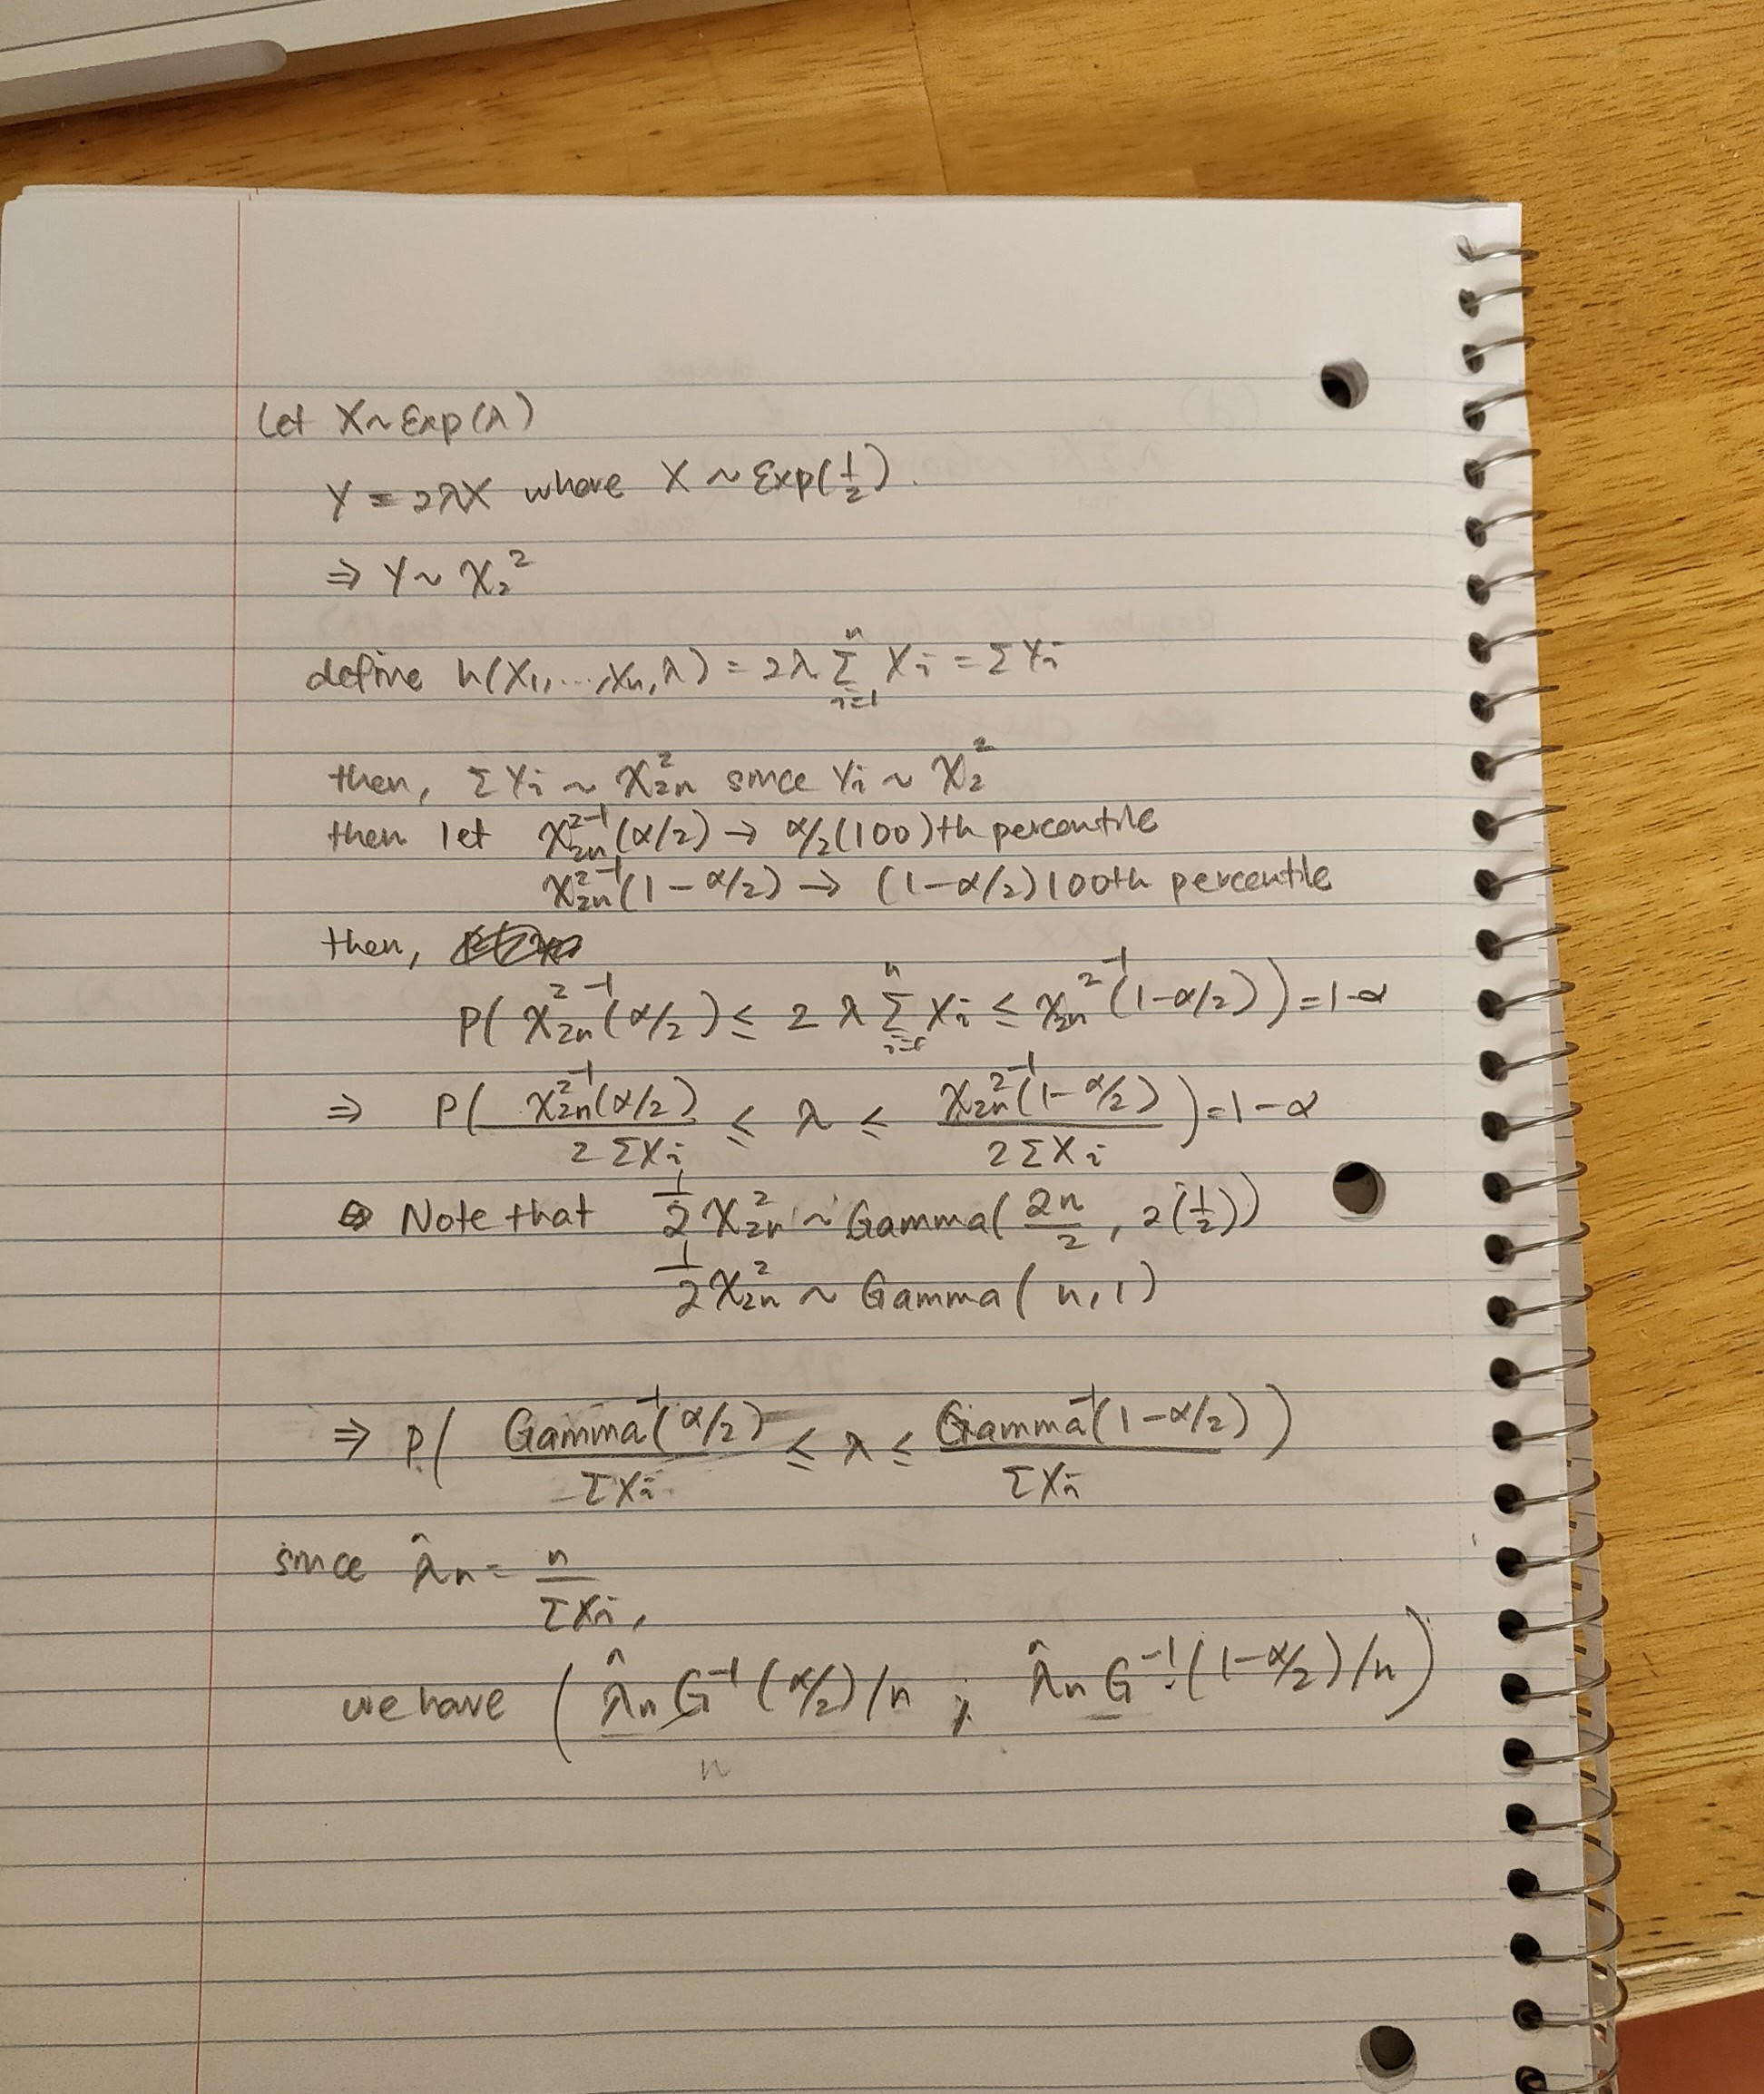 Let X ~ Exp(λ)
Y = 2λX where X ~ Exp(1/2).
⇒ Y ~ χ₂²
define h(X₁, ..., Xₙ, λ) = 2λ Σᵢ₌₁ⁿ Xᵢ = ΣYᵢ
then, ΣYᵢ ~ χ²₂ₙ since Yᵢ ~ χ₂²
then let χ²₂ₙ⁻¹(α/2) → α/2(100)th percentile
χ²₂ₙ⁻¹(1-α/2) → (1-α/2)100th percentile
then,
P( χ²₂ₙ⁻¹(α/2) ≤ 2λ Σᵢ₌₁ⁿ Xᵢ ≤ χ²₂ₙ⁻¹(1-α/2)) = 1-α
⇒ P( χ²₂ₙ⁻¹(α/2) / 2ΣXᵢ ≤ λ ≤ χ²₂ₙ⁻¹(1-α/2) / 2ΣXᵢ ) = 1-α
Note that 1/2 χ²₂ₙ ~ Gamma( 2n/2 , 2(1/2))
1/2 χ²₂ₙ ~ Gamma( n, 1)
⇒ P( Gamma⁻¹(α/2) / ΣXᵢ ≤ λ ≤ Gamma⁻¹(1-α/2) / ΣXᵢ )
since λ̂ₙ = n / ΣXᵢ,
we have ( λ̂ₙ G⁻¹(α/2)/n , λ̂ₙ G⁻¹(1-α/2)/n )